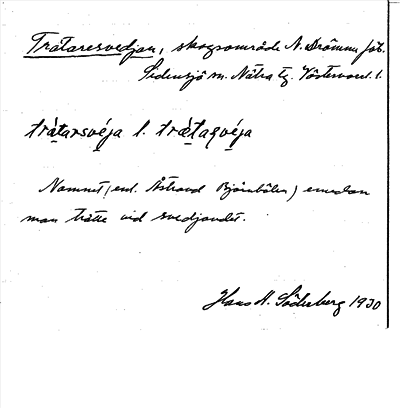 Trataresvedjan, skogsområde N. Drömme, Jäb.
Sidensjö sn. Nätra tg. Västernorrl. l.
tràtarsvéja l. trætaɋvéja
Namnet (enl. Åstrand Björnbölen) emedan
man trätte vid svedjandet.
Hans A. Söderberg 1930